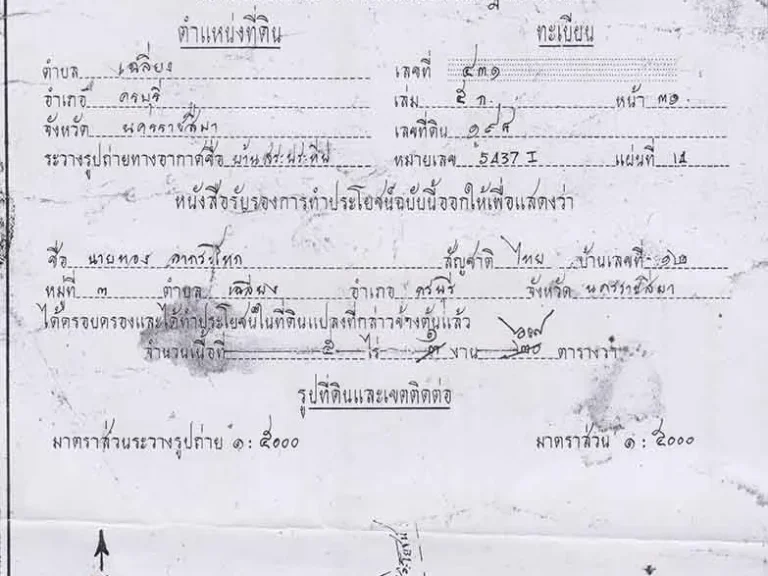 ตำแหน่งที่ดิน ทะเบียน
ตำบล เฉลียง เลขที่ ๔๓๑
อำเภอ ครบุรี เล่ม ๕ ก. หน้า ๓๑.
จังหวัด นครราชสีมา เลขที่ดิน
ระวางรูปถ่ายทางอากาศชื่อ หมายเลข 5437 I แผ่นที่ 14
หนังสือรับรองการทำประโยชน์ฉบับนี้ออกให้เพื่อแสดงว่า
ชื่อ นายทอง สัญชาติ ไทย บ้านเลขที่ ๑๒
หมู่ที่ ๓ ตำบล เฉลียง อำเภอ ครบุรี จังหวัด นครราชสีมา
ได้ครอบครองและได้ทำประโยชน์ในที่ดินแปลงที่กล่าวข้างต้นแล้ว
จำนวนเนื้อที่ ๕ ไร่ ๑ งาน ตารางวา
รูปที่ดินและเขตติดต่อ
มาตราส่วนระวางรูปถ่าย ๑ : ๕๐๐๐ มาตราส่วน ๑ : ๕๐๐๐